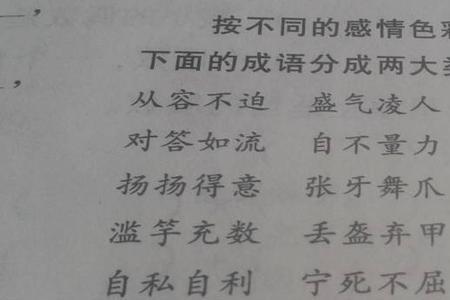 按不同的感情色彩
下面的成语分成两大类
从容不迫 盛气凌人
对答如流 自不量力
扬扬得意 张牙舞爪
滥竽充数 丢盔弃甲
自私自利 宁死不屈